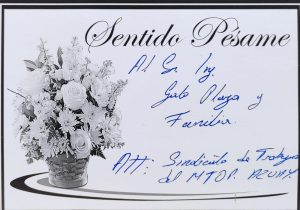 Sentido Pésame
Al Sr. Ing.
Galo Plaza y
Familia.
Att: Sindicato de Trabaja
del MTOP. AZUAY